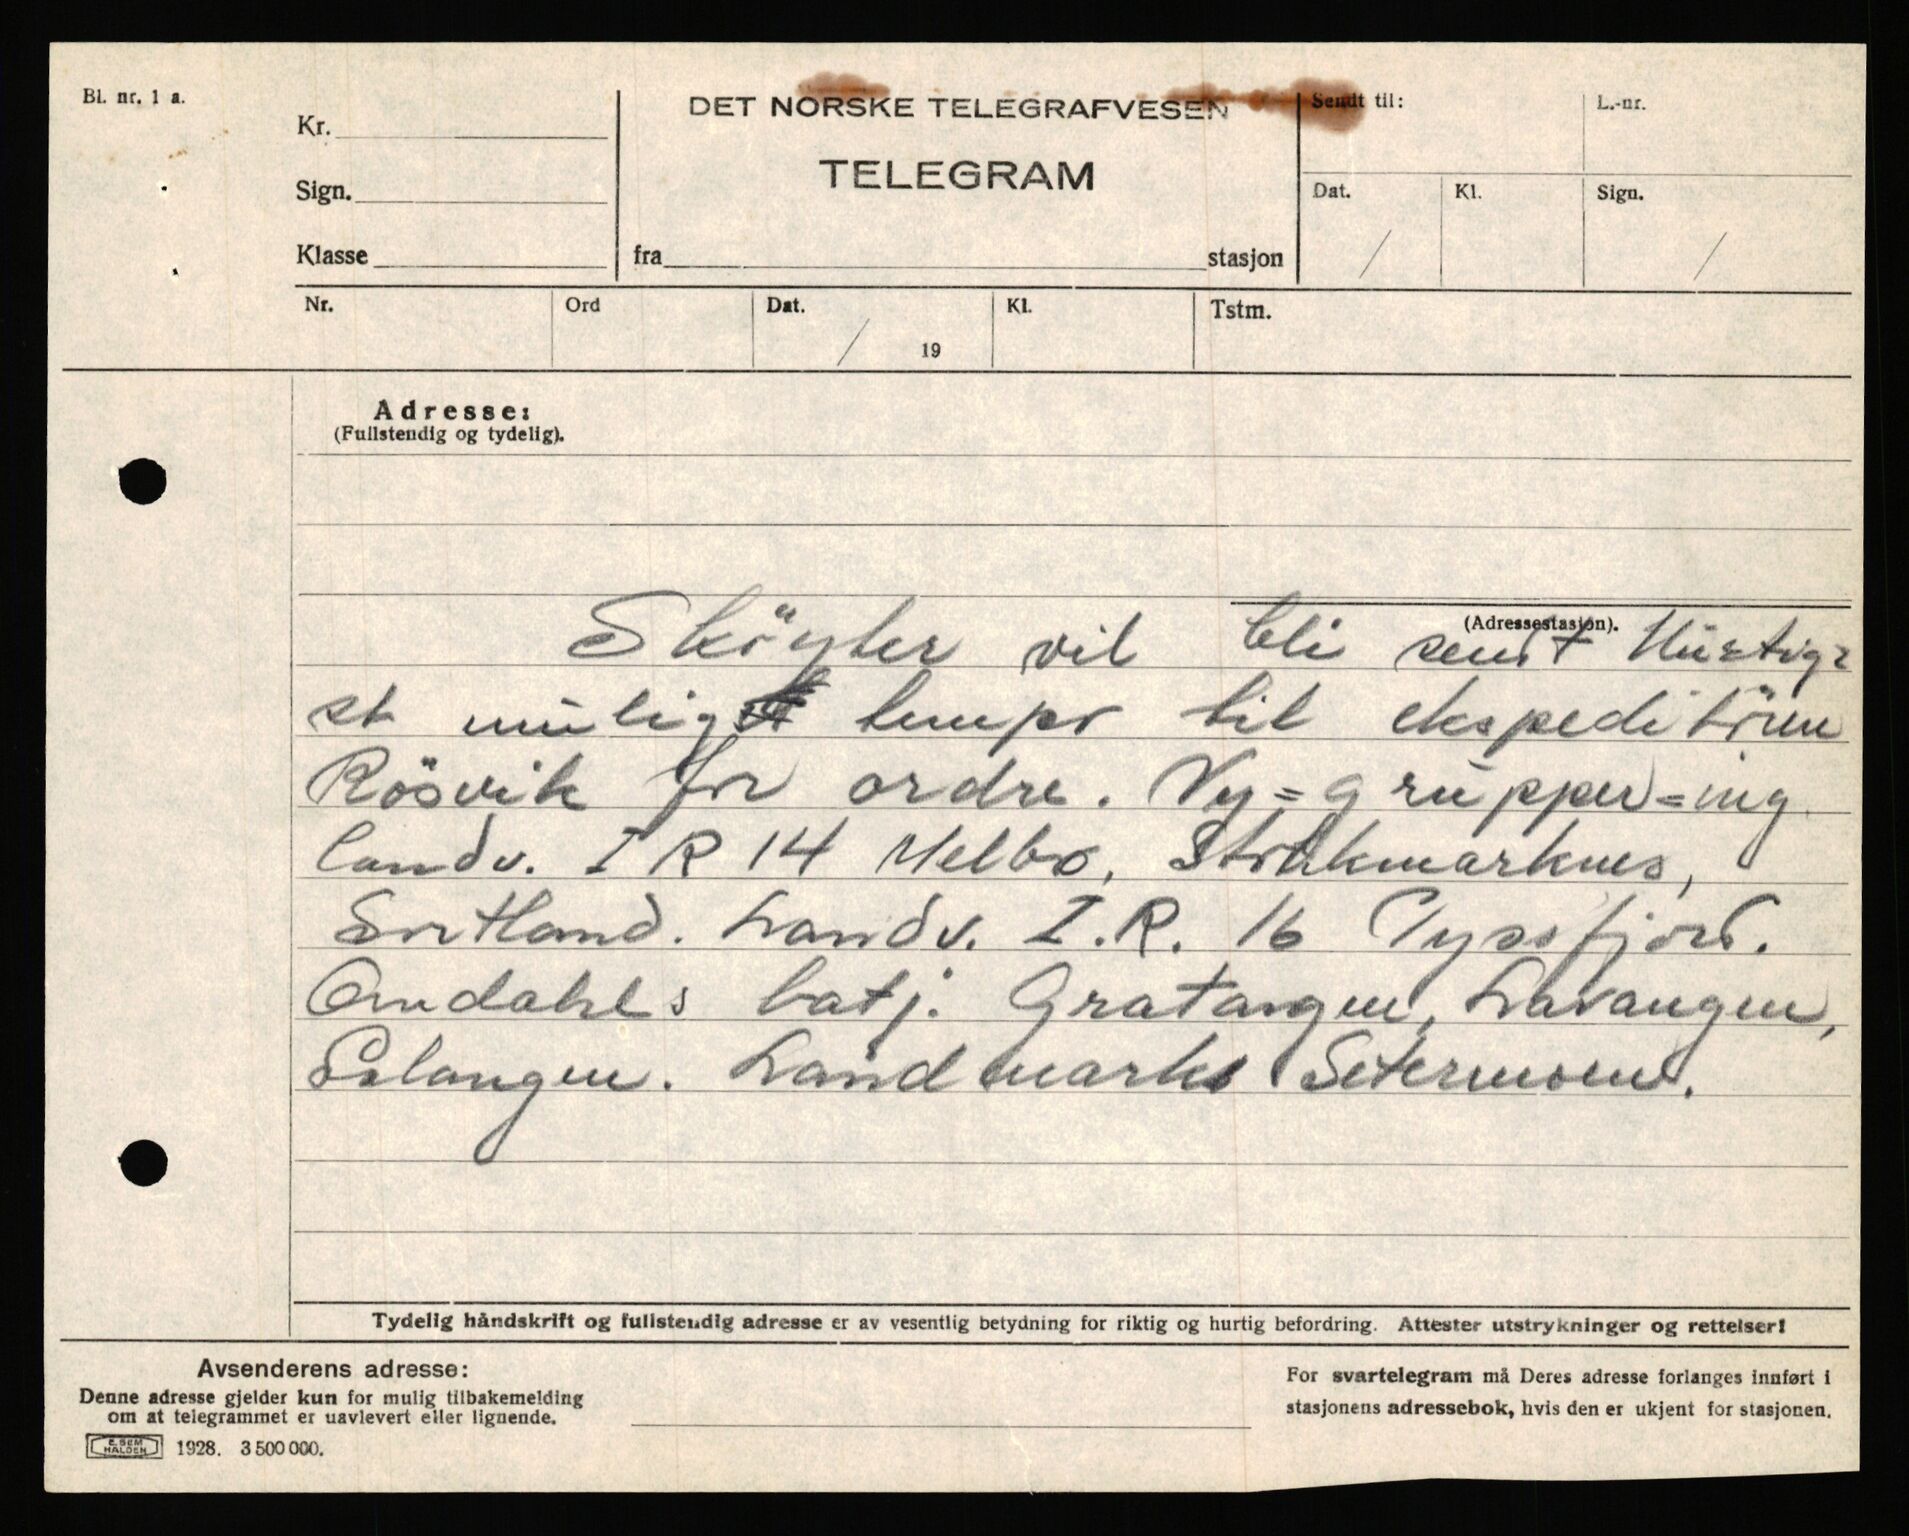 Bl. nr. 1 a.
Kr.
Sign.
Klasse
DET NORSKE TELEGRAFVESEN
TELEGRAM
fra stasjon
Sendt til:
L.-nr.
Dat. / Kl. Sign. /
Nr. Ord Dat. / 19 Kl. Tstm.
Adresse:
(Fullstendig og tydelig).
(Adressestasjon).
Sköyter vil bli sendt Hurtig=
st mulig tempo til ekspeditören
Rösvik for ordre. Ny=grupper=ing
landv. I R 14 Melbo, Stokmarknes,
Sortland. Landv. I.R. 16 Tyssfjord.
Omdahls batj. Gratangen, Lavangen,
Salangen. Landmarks Setermoen.
Tydelig håndskrift og fullstendig adresse er av vesentlig betydning for riktig og hurtig befordring. Attester utstrykninger og rettelser!
Avsenderens adresse:
Denne adresse gjelder kun for mulig tilbakemelding
om at telegrammet er uavlevert eller lignende.
E. SEM
HALDEN
1928. 3 500 000.
For svartelegram må Deres adresse forlanges innført i
stasjonens adressebok, hvis den er ukjent for stasjonen.